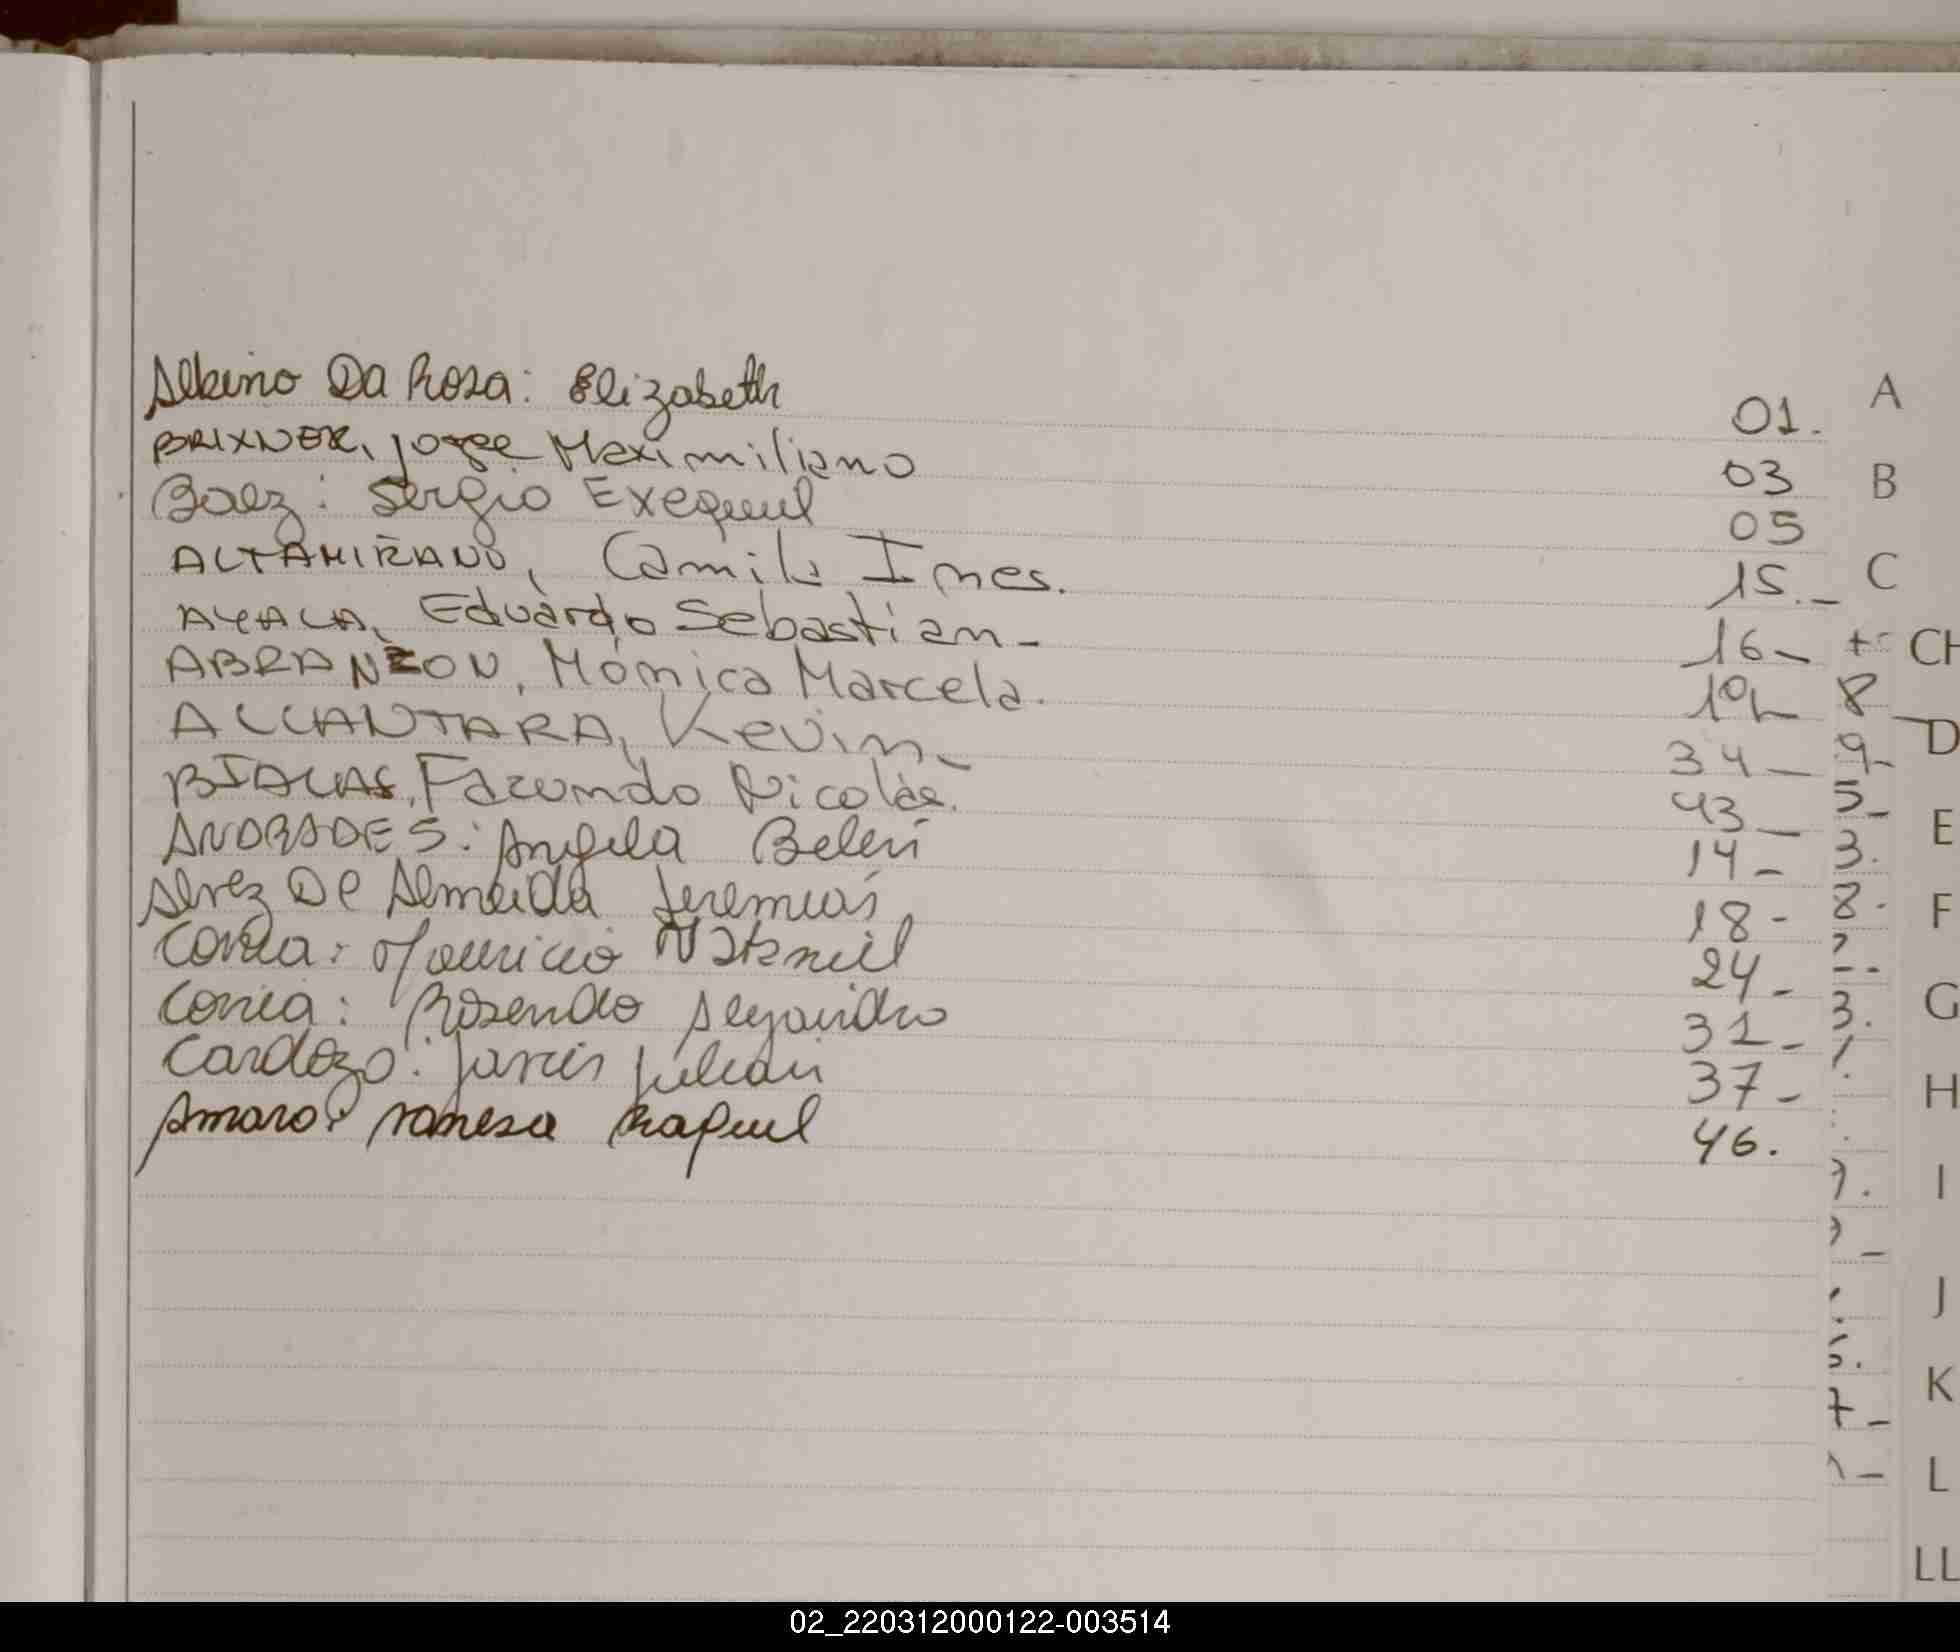 Albino Da Rosa: Elizabeth 01.
BRIXNER, Jorge Maximiliano 03
Baez: Sergio Exequiel 05
ALTAMIRANO, Camila Ines. 15.-
AYALA, Eduardo Sebastian- 16-
ABRANZON, Mónica Marcela.
ALCANTARA, Kevin- 34-
BIALAS, Facundo Nicolás. 43-
ANDRADES: Angela Belén 14-
Alvez De Almeida Jeremías 18-
Correa: Mauricio Nataniel 24-
Correa: Rosendo Alejandro 31-
Cardozo: Julián 37-
Amaro: Vanesa Raquel 46.
A
B
C
CH
D
E
F
G
H
I
J
K
L
LL
02_220312000122-003514